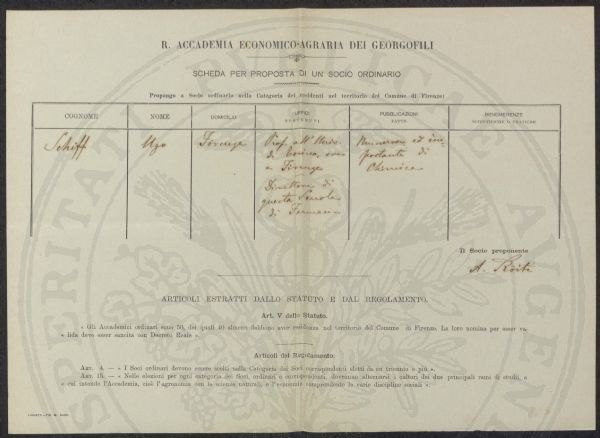 R. ACCADEMIA ECONOMICO-AGRARIA DEI GEORGOFILI
SCHEDA PER PROPOSTA DI UN SOCIO ORDINARIO
Propongo a Socio ordinario nella Categoria dei residenti nel territorio del Comune di Firenze:
COGNOME
NOME
DOMICILIO
UFFICI
SOSTENUTI
PUBBLICAZIONI
FATTE
BENEMERENZE
SCIENTIFICHE O PRATICHE
Schiff
Ugo
Firenze
Prof. all'
di
a Firenze
Direttore di
questa Scuola
di Farmacia
Numerose ed im
portanti di
Chimica
Il Socio proponente
A. Ròiti
ARTICOLI ESTRATTI DALLO STATUTO E DAL REGOLAMENTO.
Art. V dello Statuto.
« Gli Accademici ordinari sono 50, dei quali 40 almeno debbono aver residenza nel territorio del Comune di Firenze. La loro nomina per esser va-
« lida deve esser sancita con Decreto Reale ».
Articoli del Regolamento.
ART. 4. — « I Soci ordinari devono essere scelti nella Categoria dei Soci corrispondenti eletti da un triennio e più ».
ART. 15. — « Nelle elezioni per ogni categoria dei Soci, ordinari o corrispondenti, dovranno alternarsi i cultori dei due principali rami di studi, a
« cui intende l'Accademia, cioè l'agronomia con le scienze naturali, e l'economia comprendente le varie discipline sociali ».
SPERITATI
PUBLICAE
AUGEN